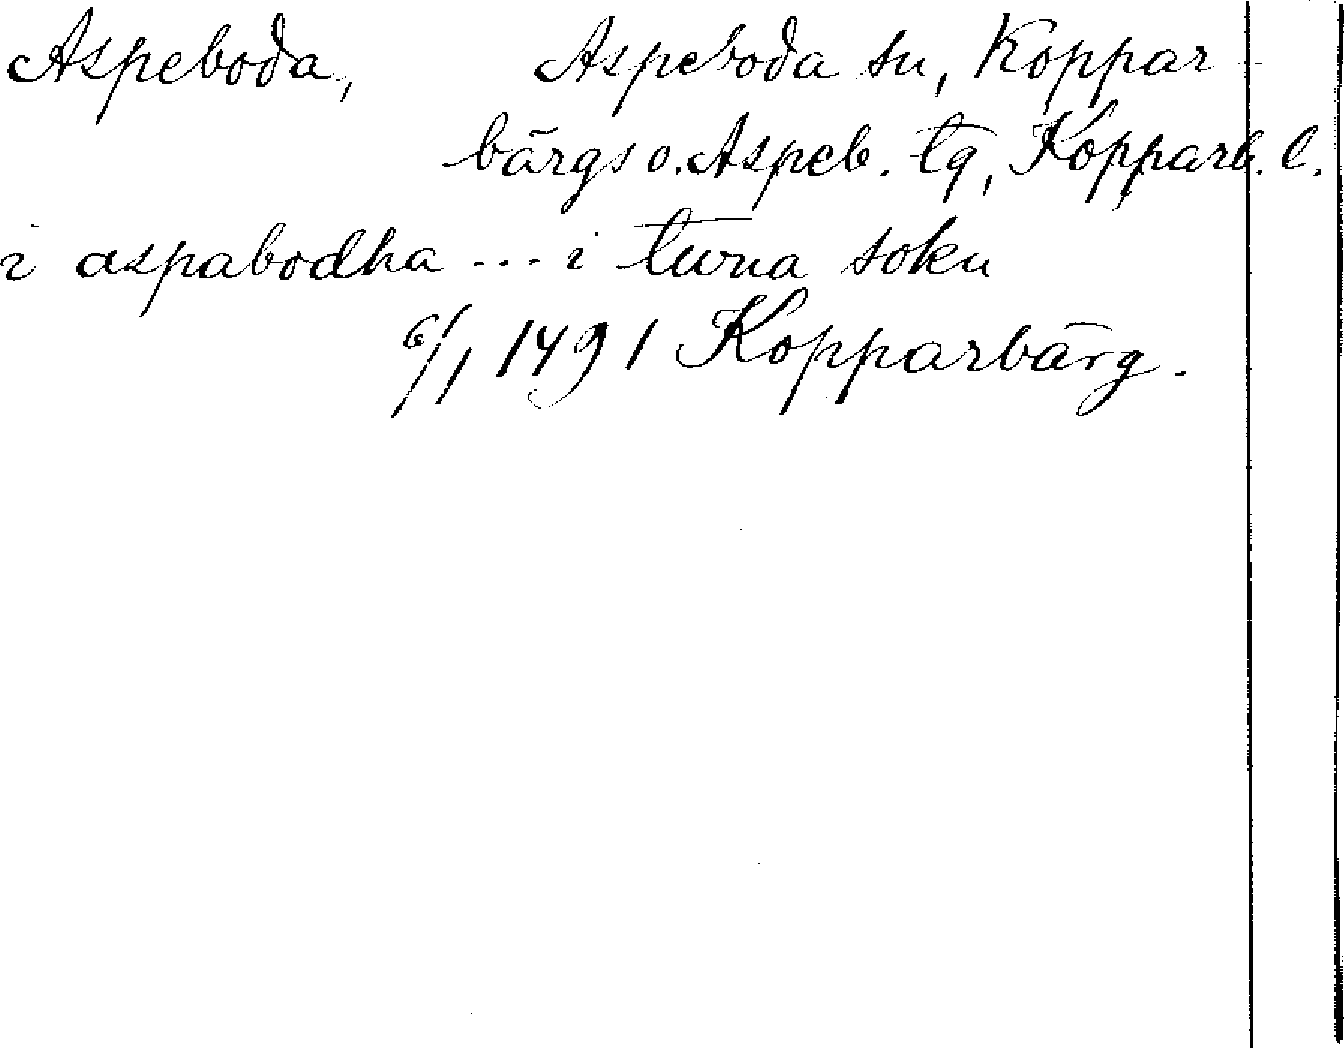 Aspeboda, Aspeboda sn, Koppar-
bärgs o. Aspeb. tg, Kopparb. l.
i aspabodha ... i tuna sokn
6/1 1491 Kopparbärg.